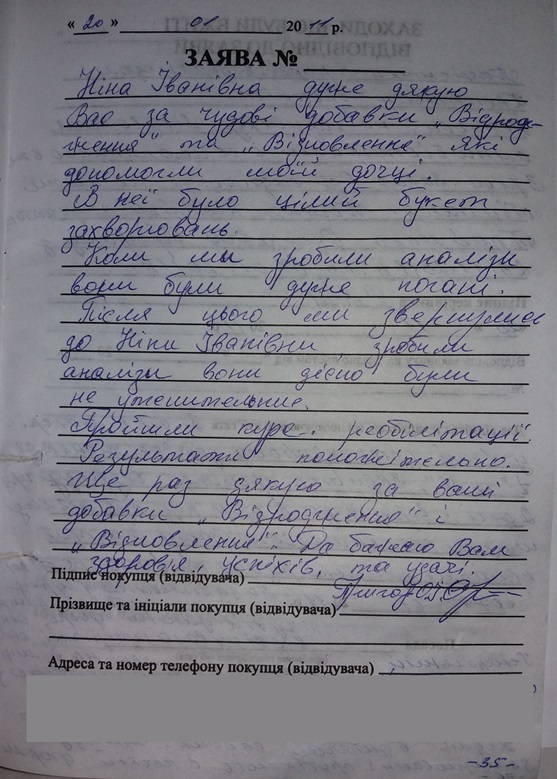 « 20 » 01 20 11 р.
ЗАЯВА №
Ніна Іванівна дуже дякую
Вас за чудові добавки „Відрод-
ження" та „Відновлення" які
допомогли моїй дочці.
В неї було цілий букет
захворювань.
Коли ми зробили аналізи
вони були дуже погані.
Після цього ми звернулися
до Ніни Іванівни зробили
аналізи вони дієно були
не утешительние.
Пройшли курс реабілітації.
Результати положітельно.
Ще раз дякую за ваші
добавки „Відродження" і
„Відновлення". Да бажаю Вам
здоров'я, успіхів, та удачі.
Підпис покупця (відвідувача)
Прізвище та ініціали покупця (відвідувача)
Адреса та номер телефону покупця (відвідувача)
-35-